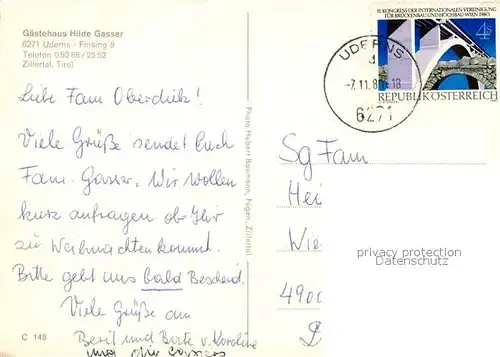 Gästehaus Hilde Gasser
6271 Uderns - Finsing 9
Telefon 05288/2552
Zillertal, Tirol
Liebe Fam Oberdiek!
Viele Grüße sendet Euch
Fam. Gasser. Wir wollen
kurz anfragen ob Ihr
zu Weihnachten kommt.
Bitte gebt uns bald Bescheid.
Viele Grüße an
Berit und Birte v. Karoline
und
C 148
Photo Hubert Baumann, Fügen, Zillertal
11. KONGRESS DER INTERNATIONALEN VEREINIGUNG
FÜR BRÜCKENBAU UND HOCHBAU · WIEN 1980
4 S
REPUBLIK ÖSTERREICH
UDERNS
-7.11.80-18
6271
Sg Fam
Hei
Wie
4900
privacy protection
Datenschutz